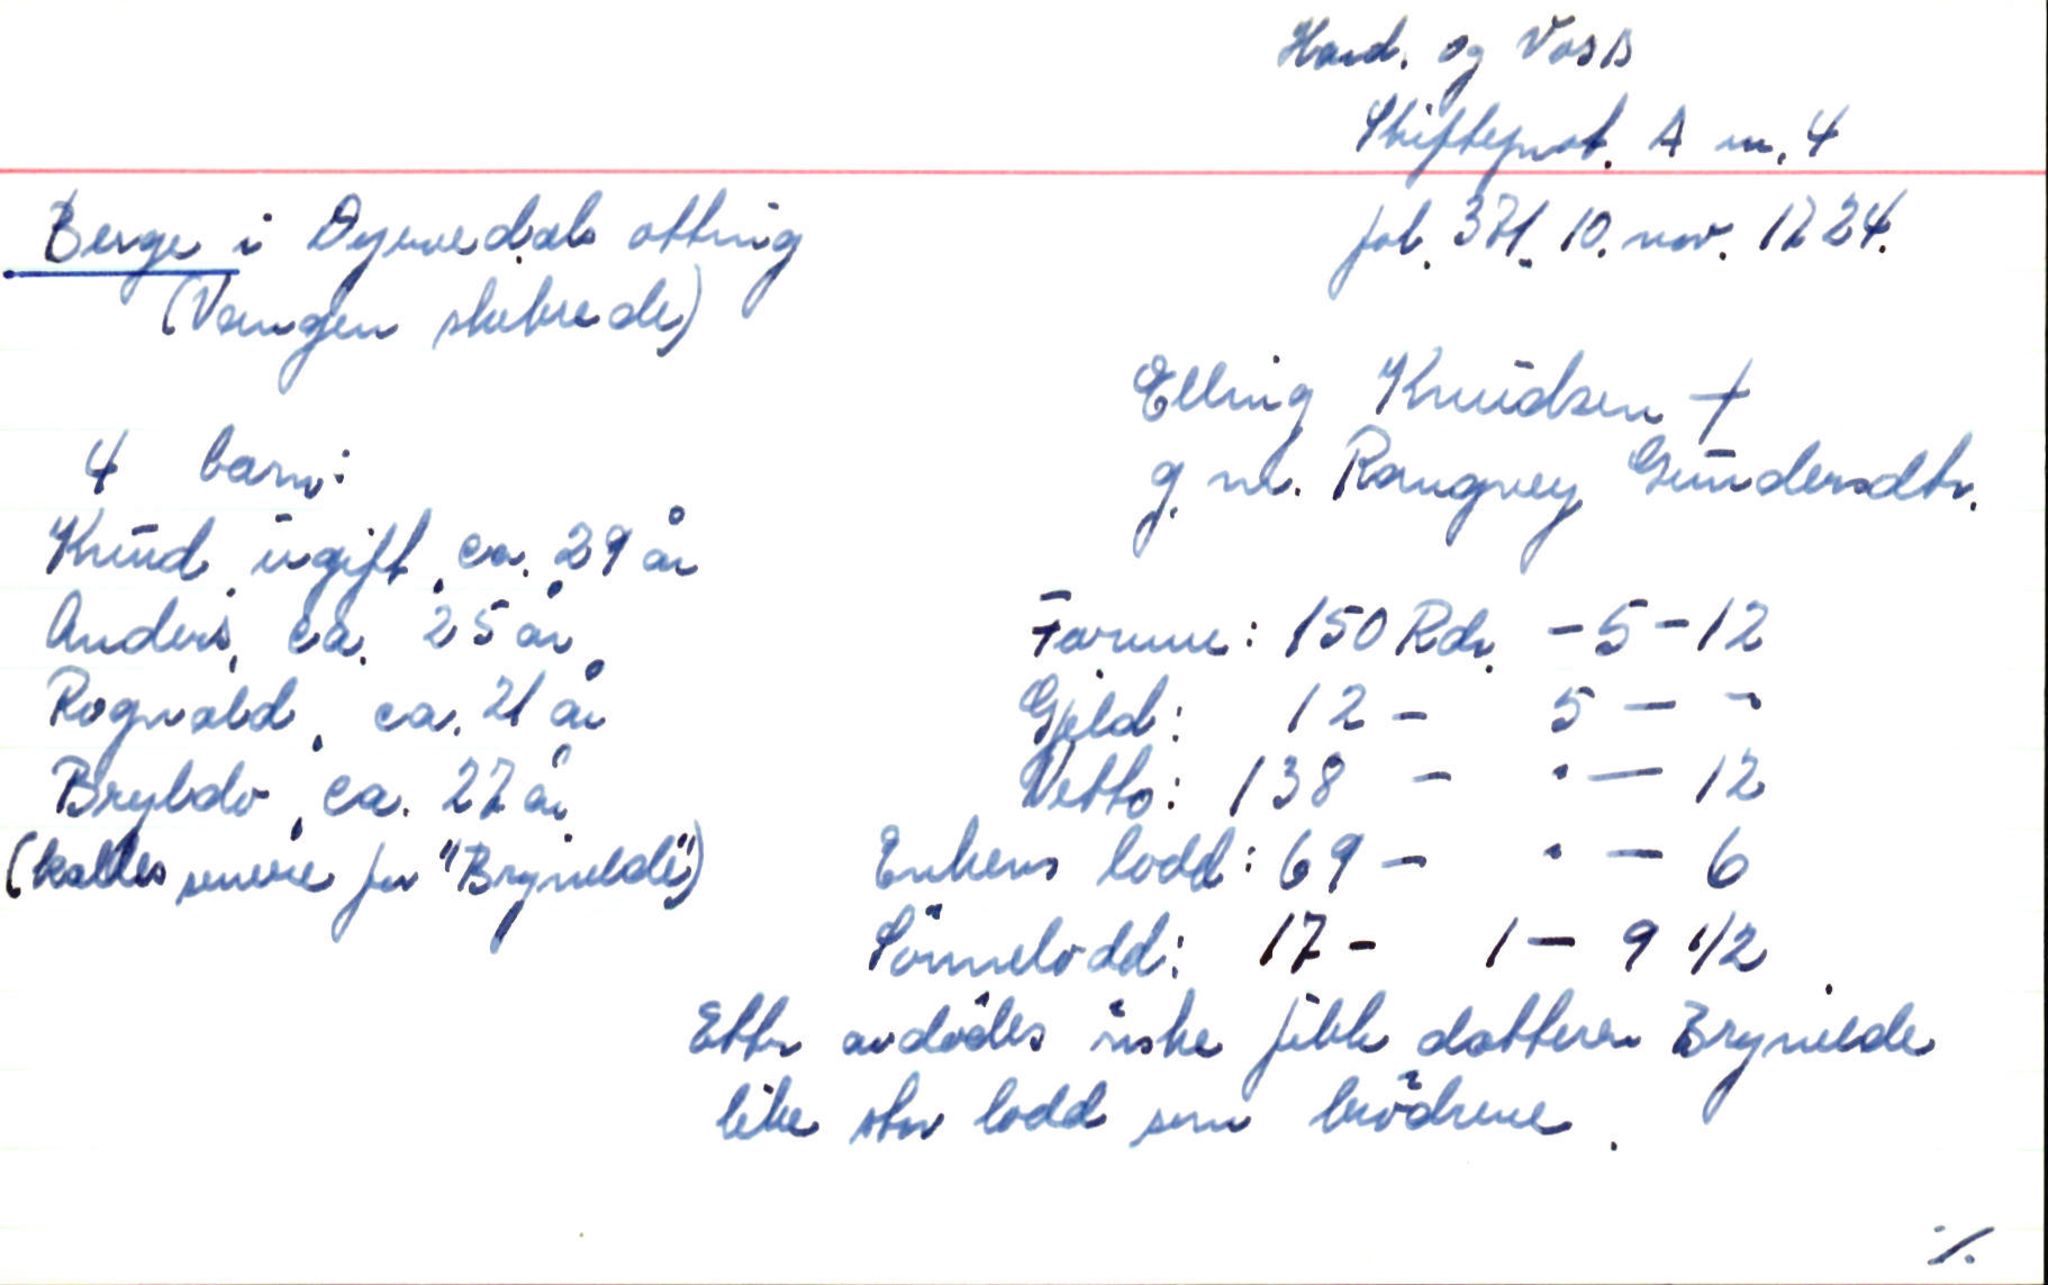 Hard. og Voss
Skifteprot. A nr. 4
fol. 371. 10. nov. 1724.
Berge i Dyrvedals otting
(Vangen skibrede)
Elling Knudsen †
g. m. Rangvey Gundersdtr.
4 barn:
Knud, ugift, ca. 29 år
Anders, ca. 25 år
Rognald, ca. 21 år
Bryldo, ca. 27 år
(kalles senere for "Brynilde")
Formue: 150 Rdr. - 5 - 12
Gjeld: 12 - 5 - -
Netto: 138 - . - 12
Enkens lodd: 69 - . - 6
Sönnelodd: 17 - 1 - 9 1/2
Etter avdödes öske fikk datteren Brynilde
like stor lodd som brödrene.
·/.